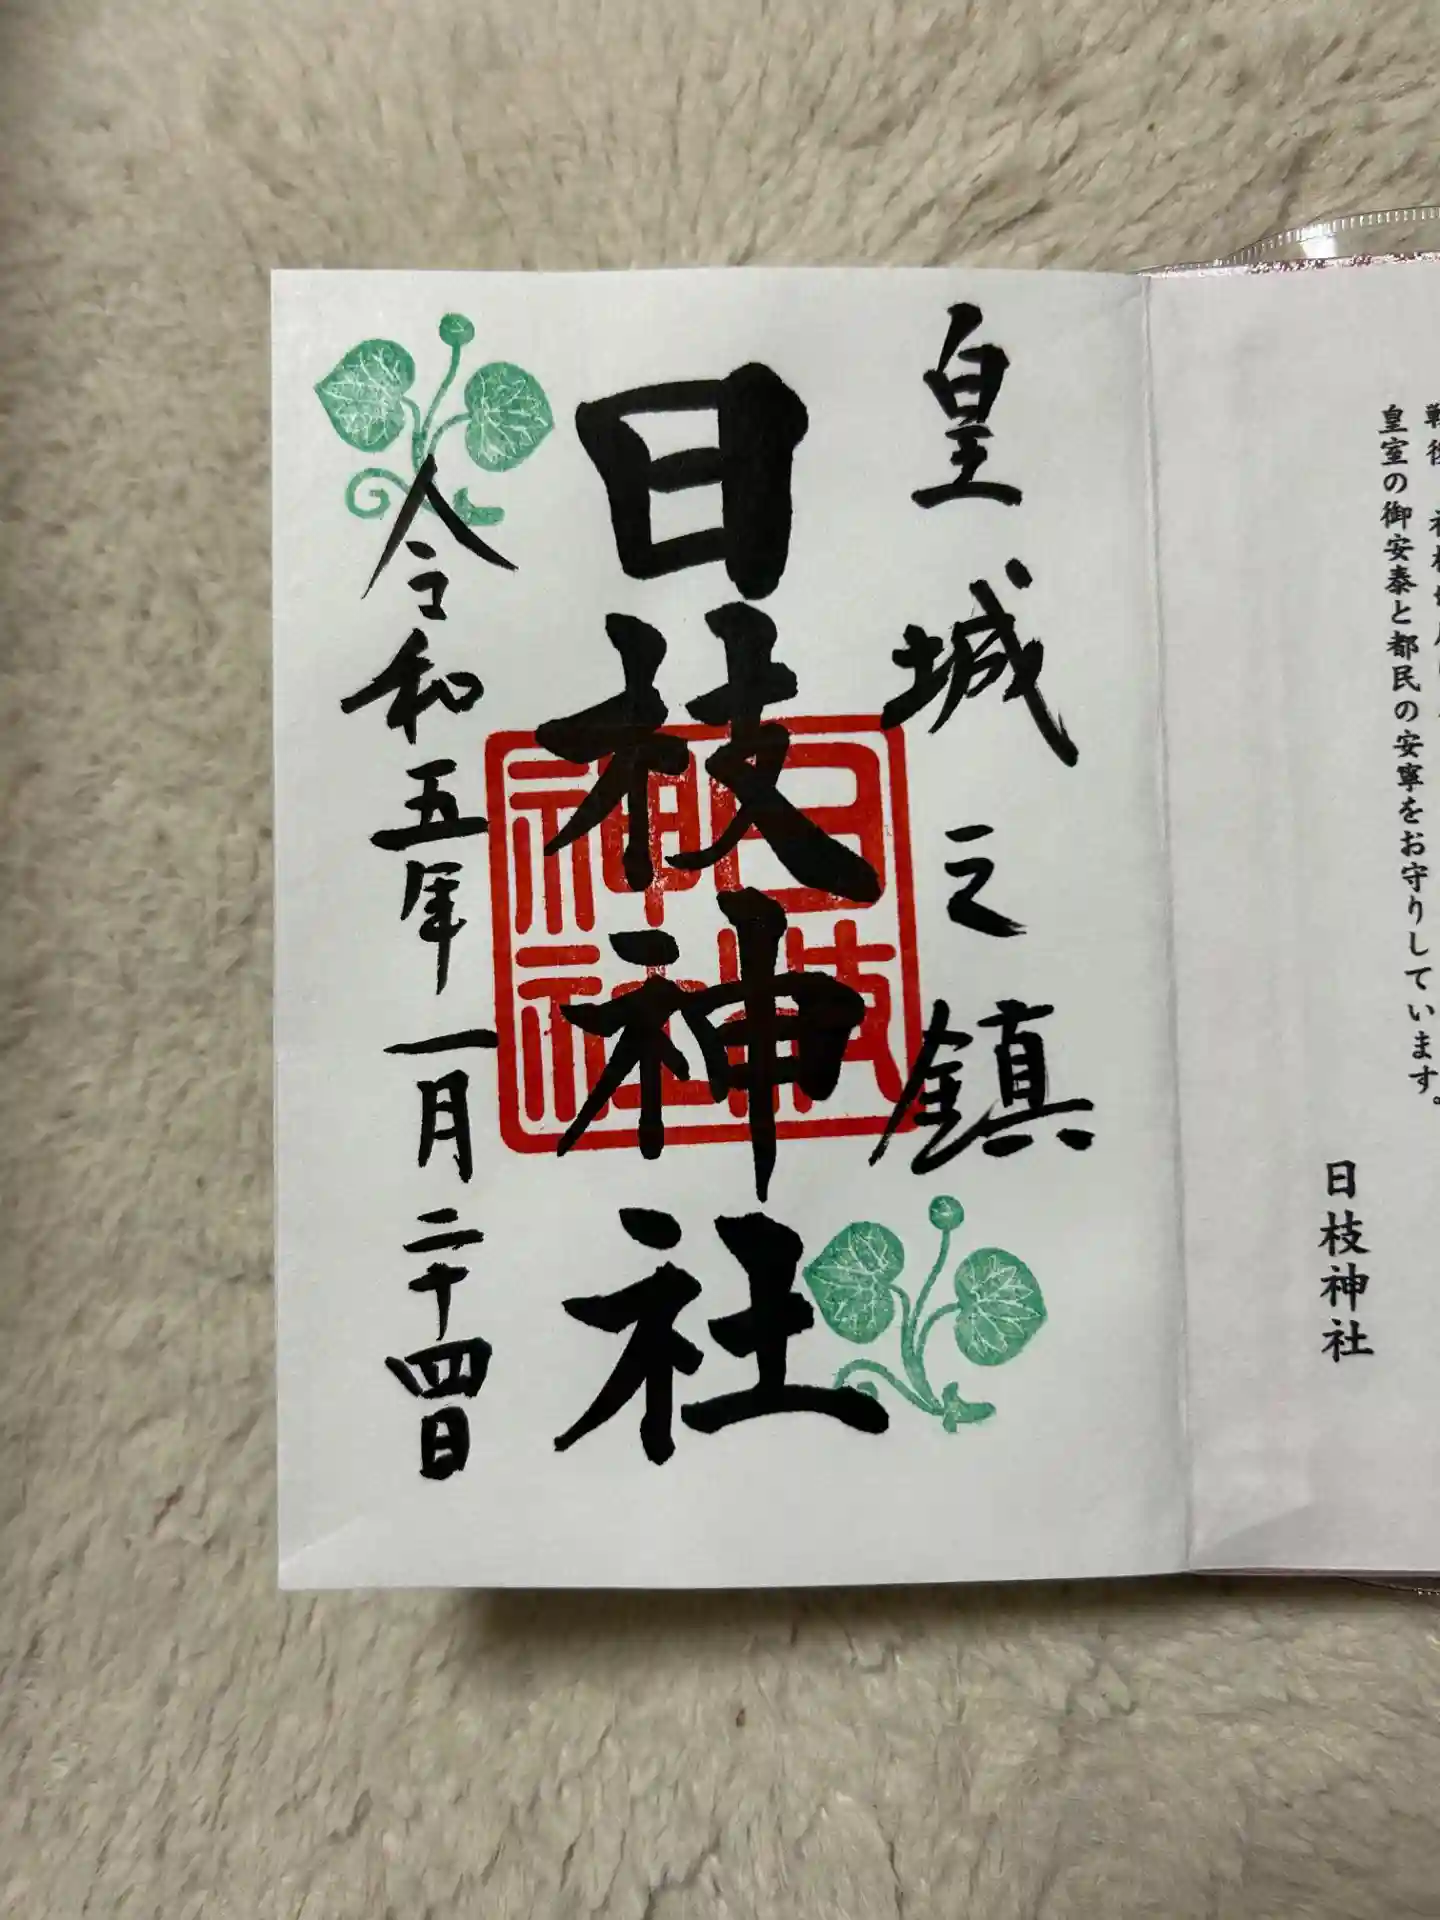 皇室の御安泰と都民の安寧をお守りしています。
日枝神社
皇城之鎮
日枝神社
日枝
神社
令和五年一月二十四日